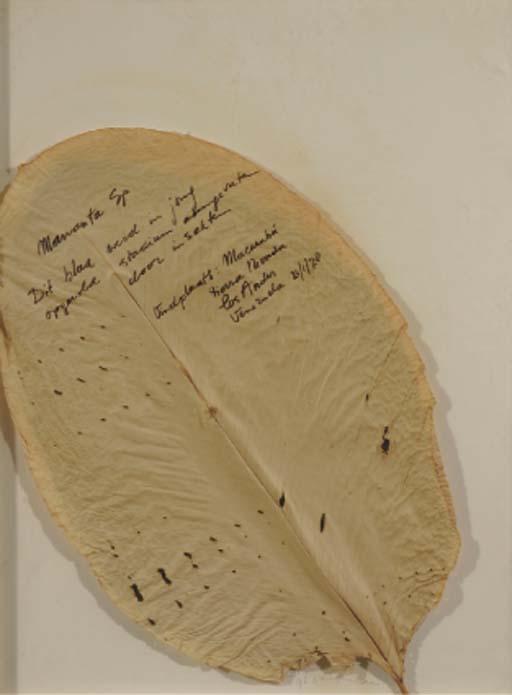 Maranta Sp
Dit blad werd in jong
opgerolde stadium aangevreten
door insekten
Vindplaats: Macumba
Sierra Nevada
Los Andes
Venezuela